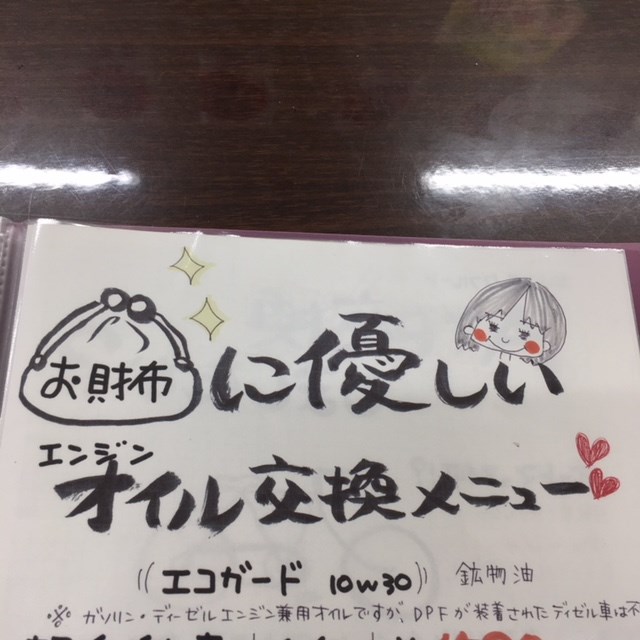 お財布に優しい
エンジン
オイル交換メニュー
エコガード 10w30 鉱物油
※ガソリン・ディーゼルエンジン兼用オイルですが、DPFが装着されたディゼル車は不